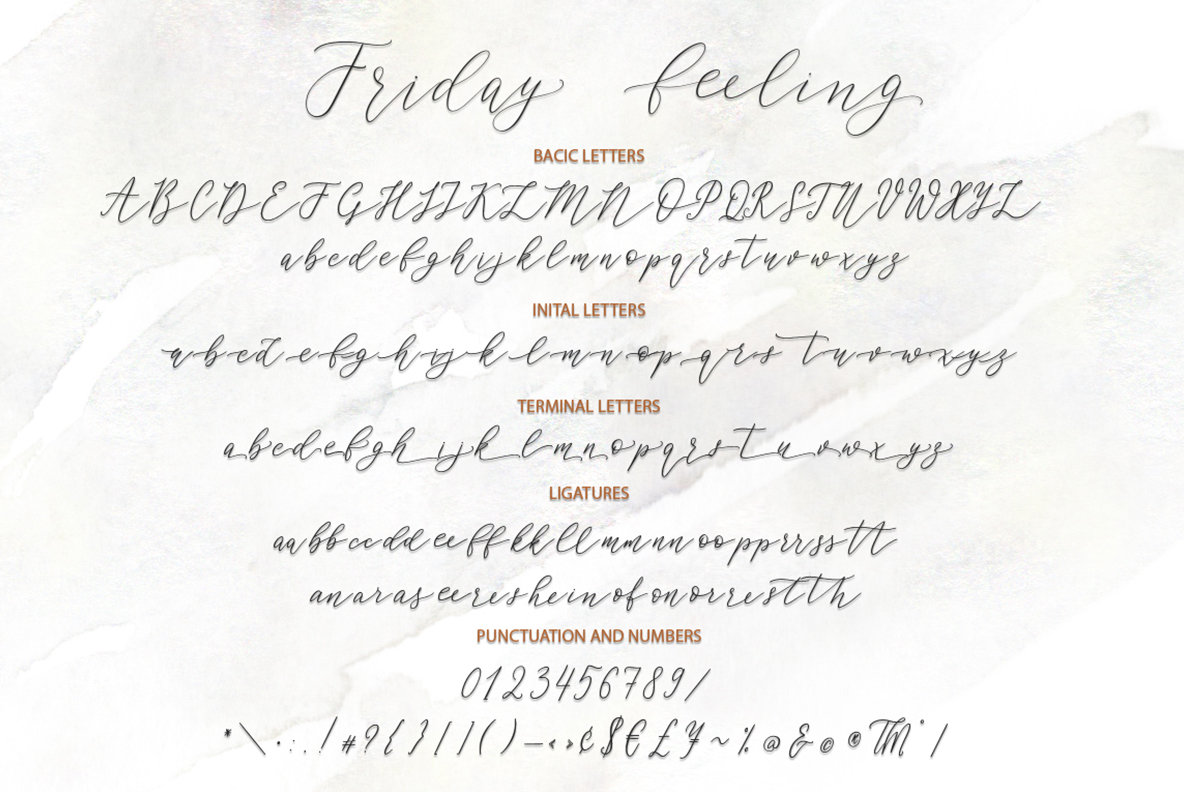 Friday feeling
BACIC LETTERS
A B C D E F G H I J K L M N O P Q R S T U V W X Y Z
a b c d e f g h i j k l m n o p q r s t u v w x y z
INITAL LETTERS
a b c d e f g h i j k l m n o p q r s t u v w x y z
TERMINAL LETTERS
a b c d e f g h i j k l m n o p q r s t u v w x y z
LIGATURES
aa bb cc dd ee ff kk ll mm nn oo pp rr ss tt
an ar as ee re she in of on or re st th
PUNCTUATION AND NUMBERS
0 1 2 3 4 5 6 7 8 9 /
* \ · : . ! # ? { } [ ] ( ) – ‹ › ¢ $ € £ ¥ ~ % @ & © ® TM ° /